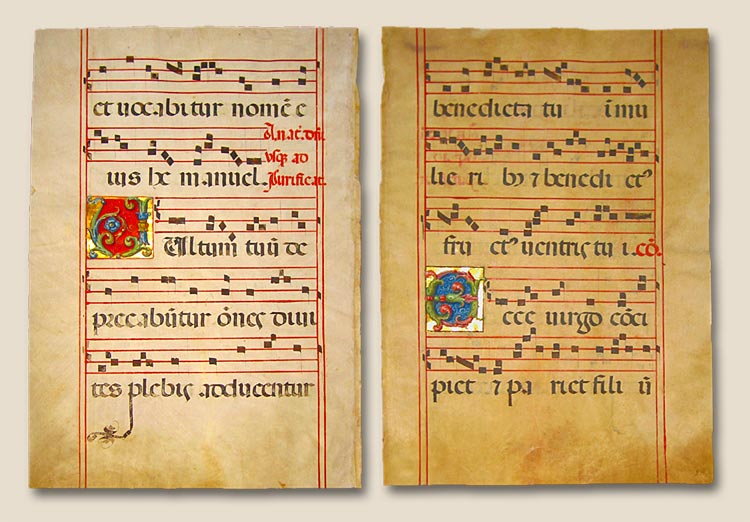 et uocabitur nomē e
ius he manuel.
Ultum tuū de
precabūtur ōnes diui
tes plebis adducentur
benedicta tu ī mu
lie ri bꝰ ⁊ benedi ctꝰ
fru ctꝰ uentris tu i. cō.
Ecce uirgo cōci
piet ⁊ pa riet fili ū